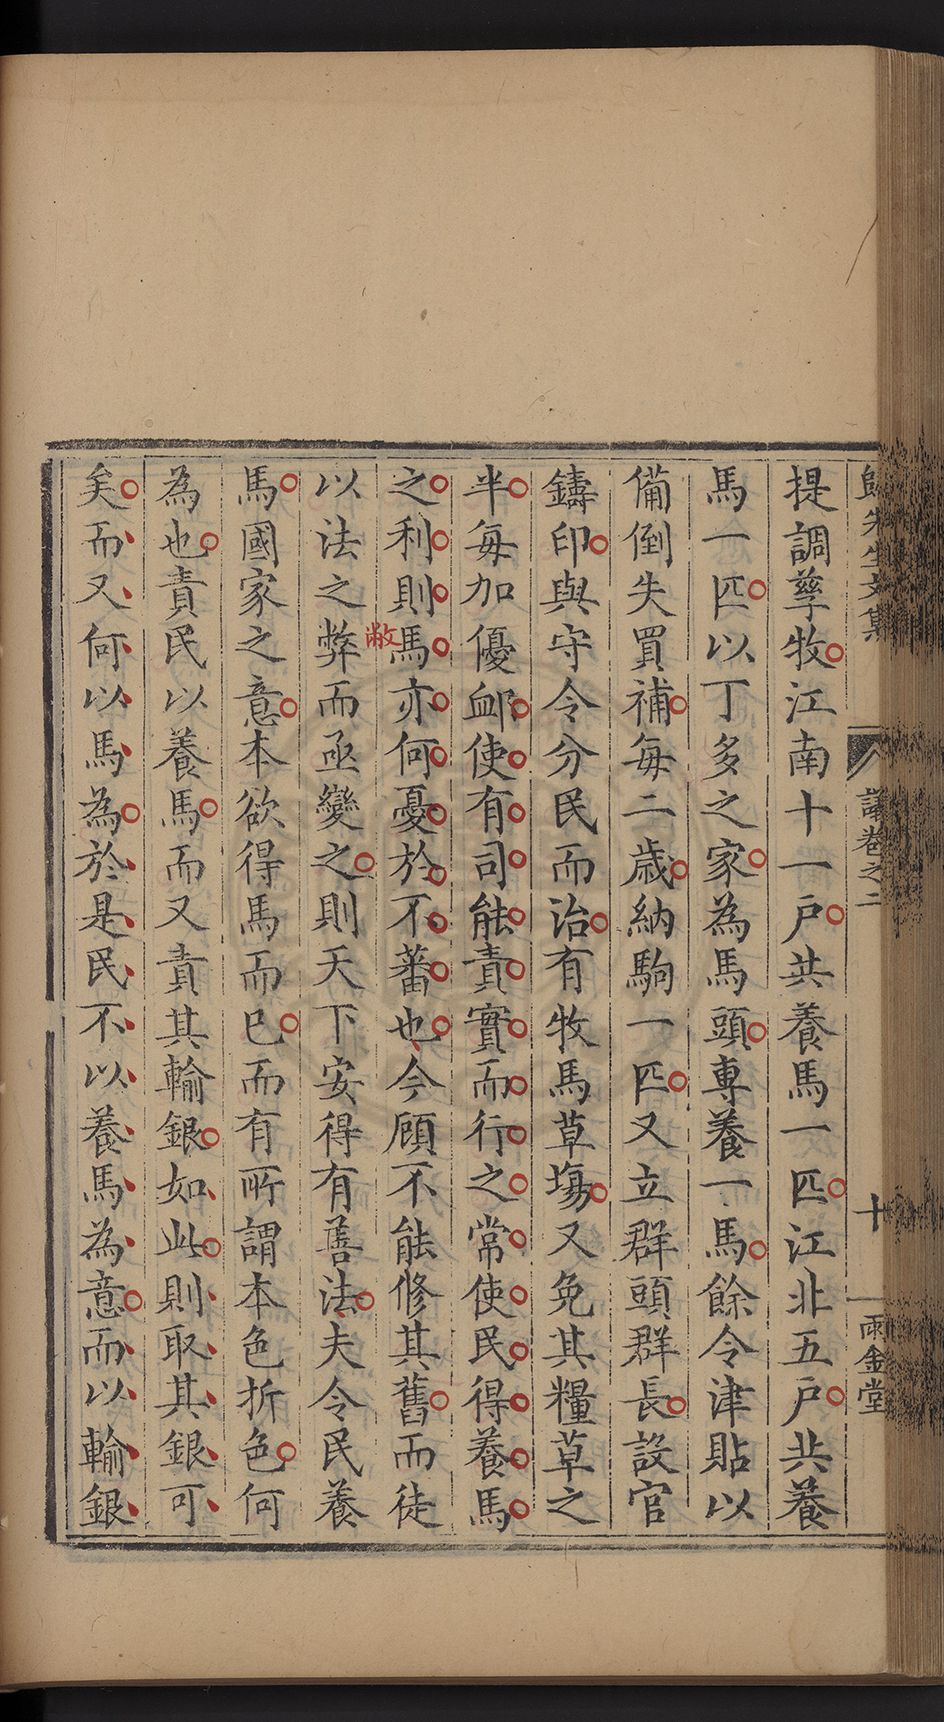 歸先生文集
議卷之二
十
雨金堂
提調孳牧江南十一戶共養馬一匹江北五戶共養
馬一匹以丁多之家為馬頭專養一馬餘令津貼以
備倒失買補每二歲納駒一匹又立群頭群長設官
鑄印與守令分民而治有牧馬草塲又免其糧草之
半每加優衈使有司能責實而行之常使民得養馬
之利則馬亦何憂於不蕃也今顧不能修其舊而徒
以法之弊而亟變之則天下安得有善法夫令民養
敝
馬國家之意本欲得馬而已而有所謂本色折色何
為也責民以養馬而又責其輸銀如此則取其銀可
矣而又何以馬為於是民不以養馬為意而以輸銀